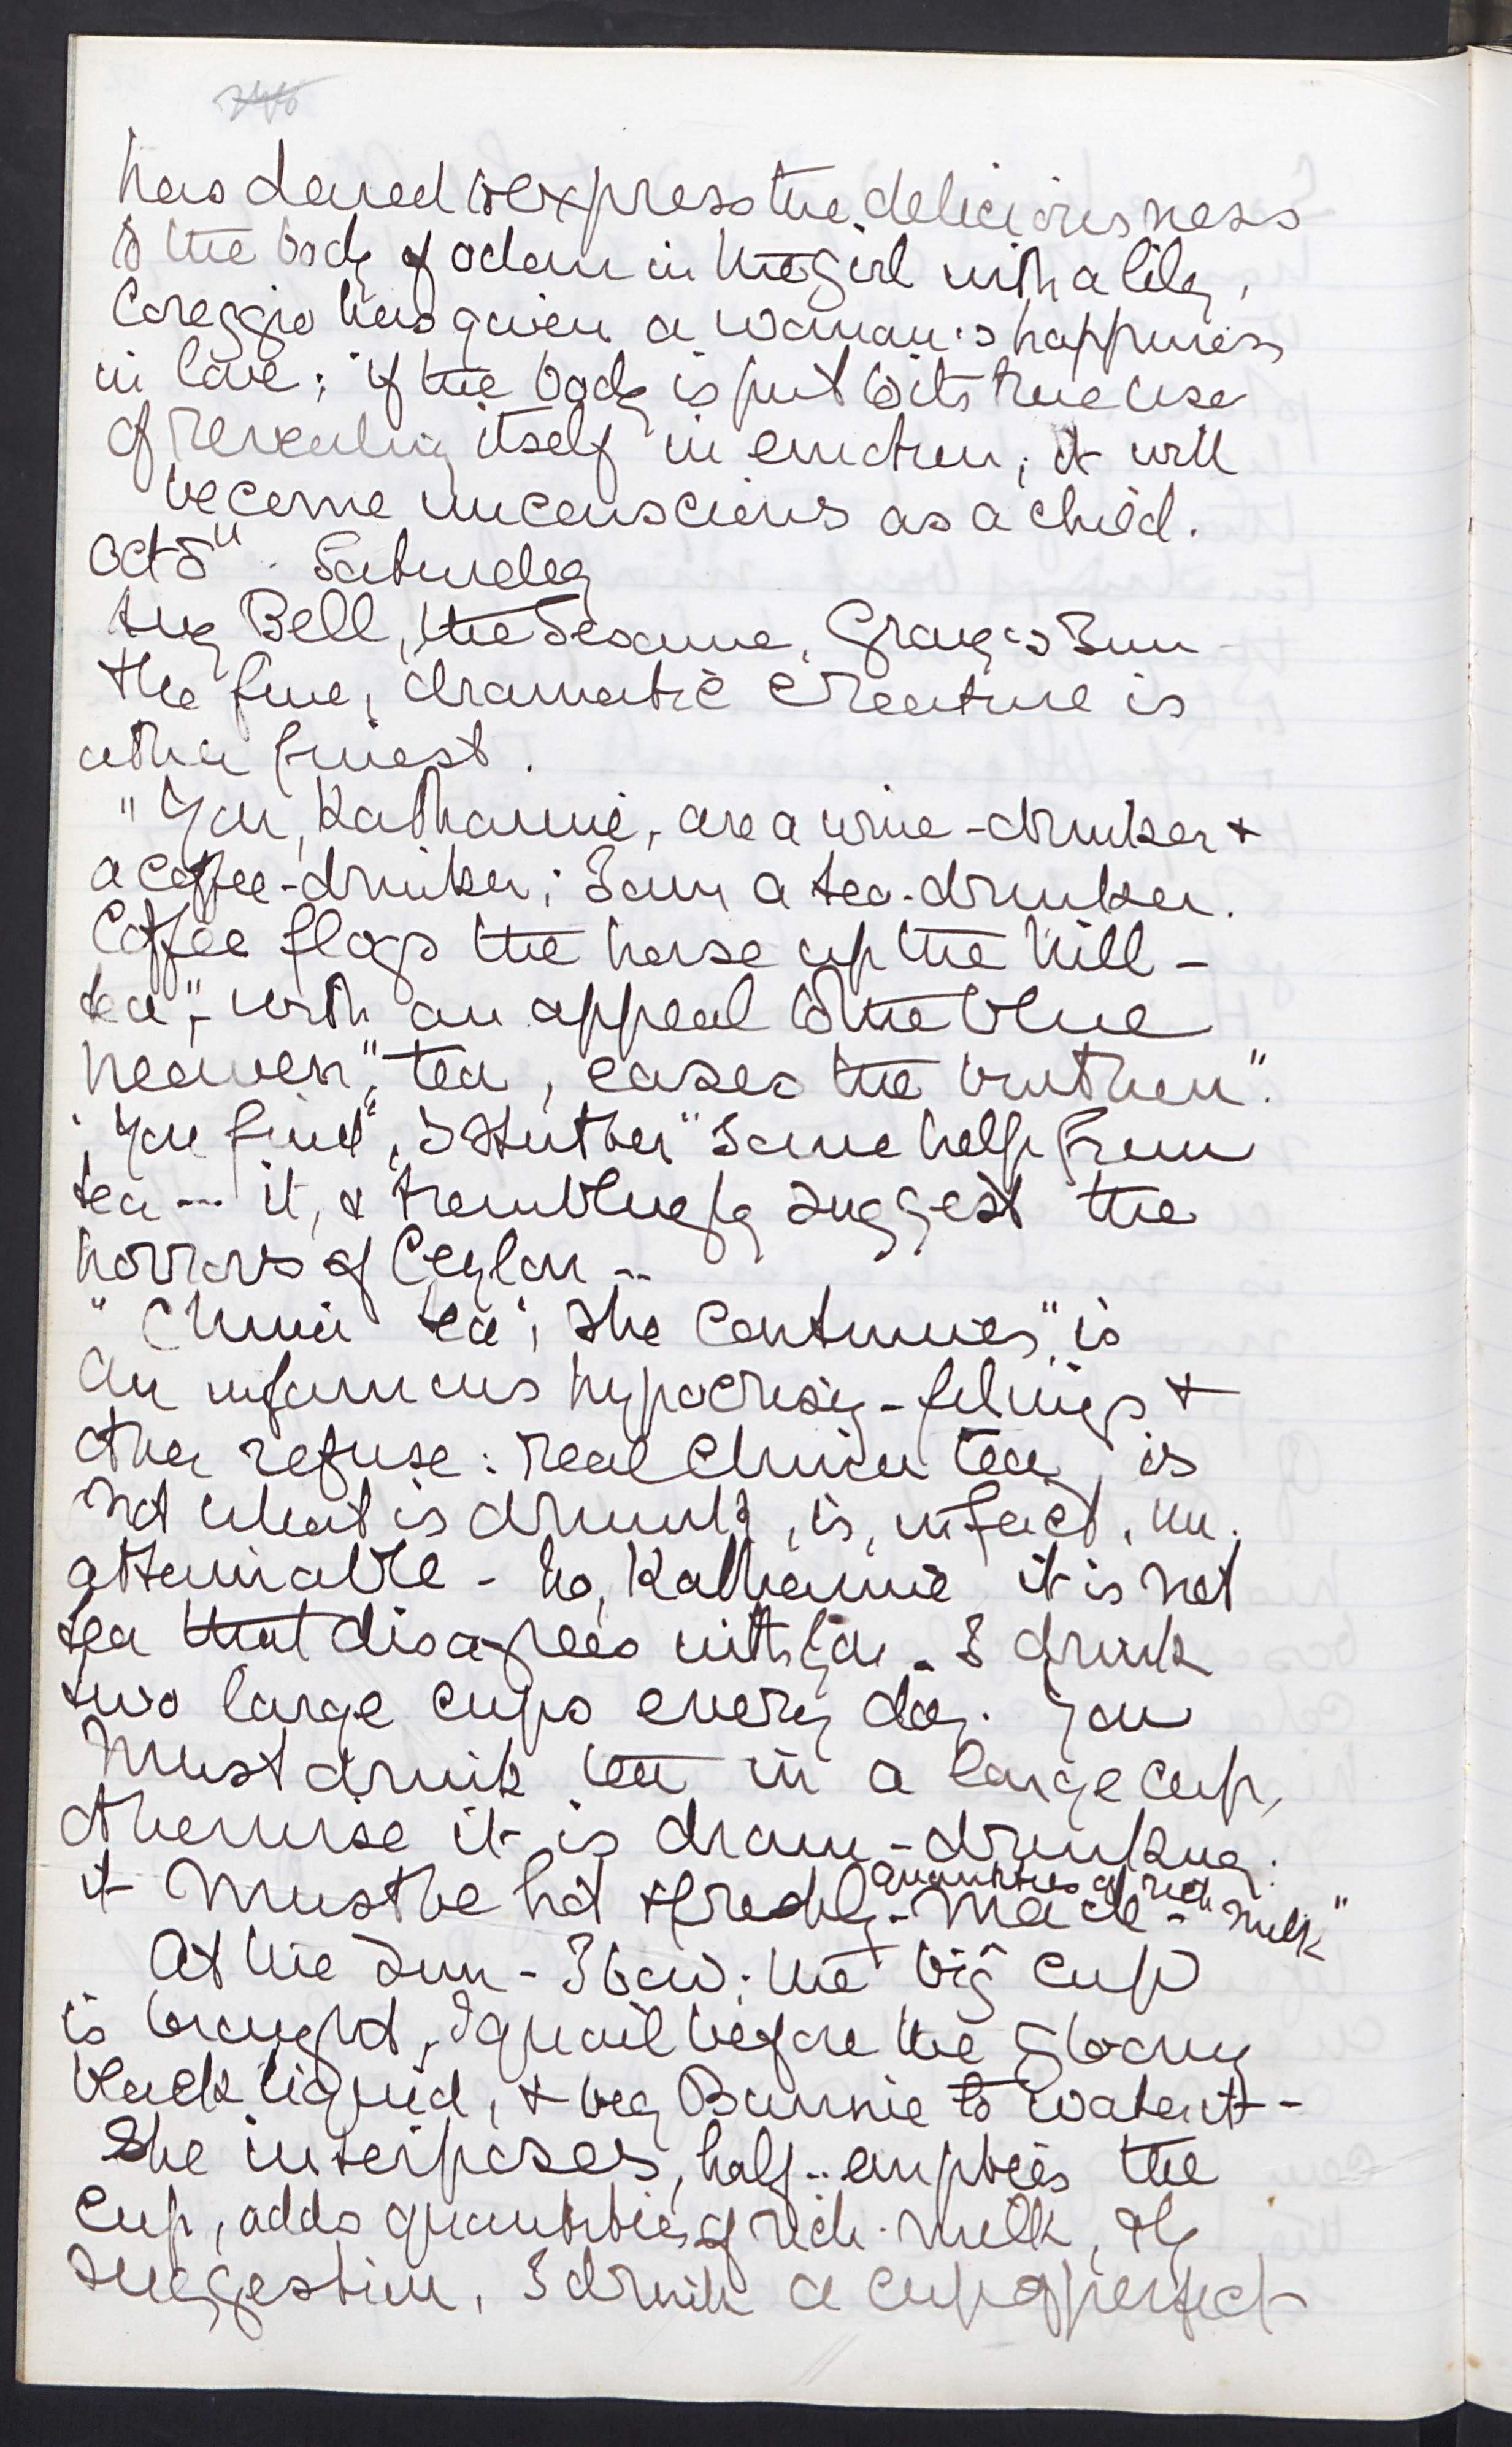 has dared to express the deliciousness
to the body of odour in the girl with a lily,
Coreggio has given a woman's happiness
in love; if the body is put to its true use
of revealing itself in emotion, it will
become unconscious as a child.
Oct 5" Saturday
Bell, the Sesame, Gray's Inn
the fine, dramatic creature is
at her finest.
"You, Katharine, are a wine-drinker +
a coffee-drinker; I am a tea-drinker.
Coffee flogs the horse up the hill -
tea", with an appeal to the blue
heaven, "tea, eases the burthen".
"You find", I stutter "some help from
tea --- it, & tremblingly suggest the
horrors of Ceylon --
"China tea", she continues, "is
an infamous hypocrisy - filings +
other refuse: real China tea, is
not what is drunk, is, in fact, un-
attainable - no, Katharine it is not
tea that disagrees with you. I drink
two large cups every day. You
must drink tea in a large cup,
otherwise it is dram-drinking.
quantities of rich
it must be hot & freshly-made - "milk"
At the Inn - I bow; the big cup
is brought, I quail before the
black liquid, & beg Bunnie to water it -
She interposes, half-empties the
cup, adds quantities of rich milk, & by
suggestion, I drink a cup of perfect